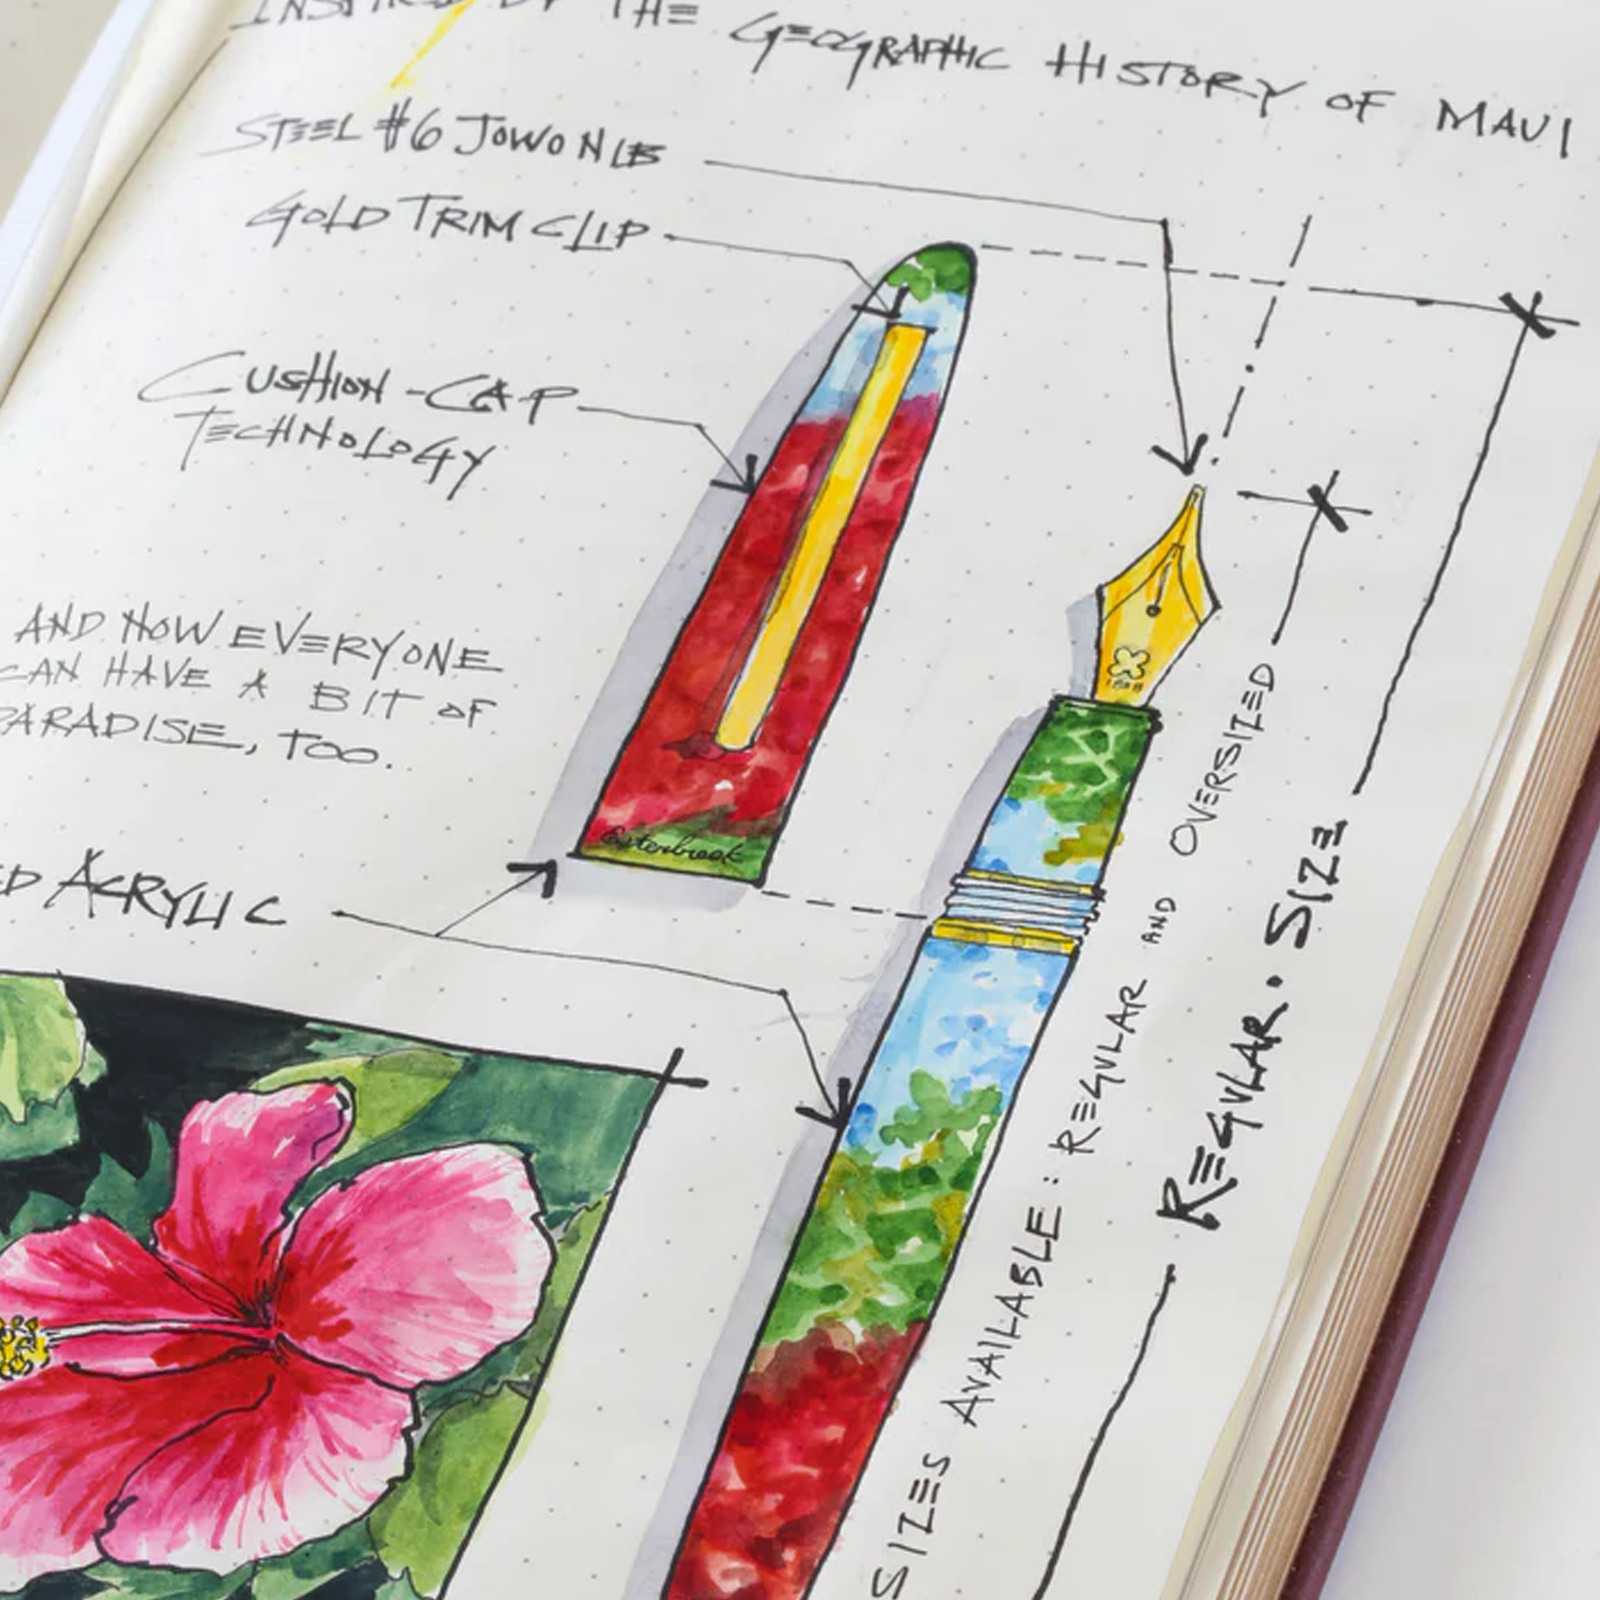 INSPIRED BY THE GEOGRAPHIC HISTORY OF MAUI
STEEL #6 JOWO NIB
GOLD TRIM CLIP
CUSHION-CAP
TECHNOLOGY
AND NOW EVERYONE
CAN HAVE A BIT OF
PARADISE, TOO.
ED ACRYLIC
Esterbrook
1858
SIZES AVAILABLE: REGULAR AND OVERSIZED
REGULAR · SIZE